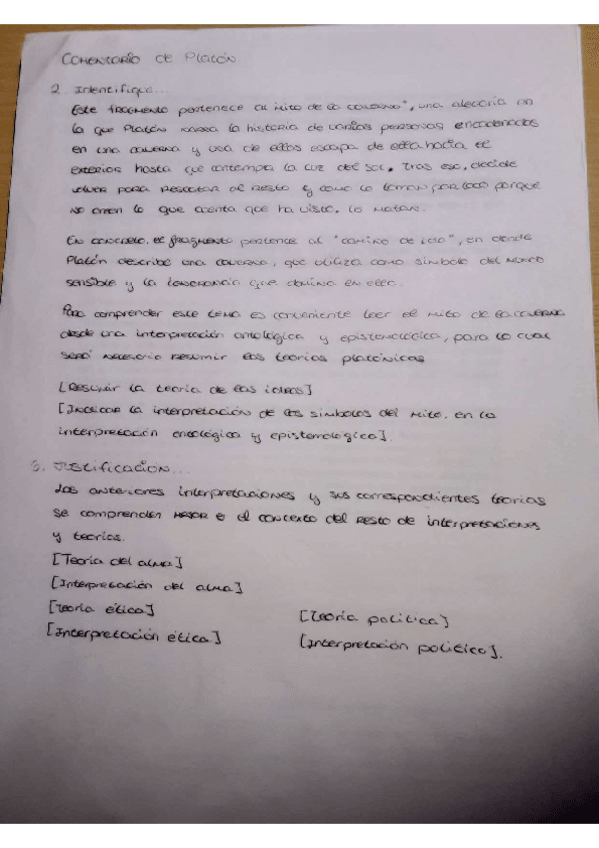 COMENTARIO de Platón
2. Identifique...
Este fragmento pertenece al mito de la caverna", una alegoría en
la que Platón narra la historia de varias personas encadenadas
en una caverna y una de ellas escapa de ella hacia el
exterior hasta que contempla la luz del sol. Tras eso, decide
volver para rescatar al resto y como lo toman por loco porque
no creen lo que cuenta que ha visto, lo matan.
En concreto, el fragmento pertenece al "camino de ida", en donde
Platón describe una caverna, que utiliza como símbolo del mundo
sensible y la ignorancia que domina en ella.
Para comprender este tema es conveniente leer el mito de la caverna
desde una interpretación ontológica y epistemológica, para lo cual
será necesario resumir las teorías platónicas
[Resumir la teoría de las ideas]
[Indicar la interpretación de los símbolos del mito, en la
interpretación ontológica y epistemológica].
3. Justificación...
Las anteriores interpretaciones y sus correspondientes teorías
se comprenden mejor en el contexto del resto de interpretaciones
y teorías.
[Teoría del alma]
[Interpretación del alma]
[Teoría ética]
[Interpretación ética]
[Teoría política]
[Interpretación política].